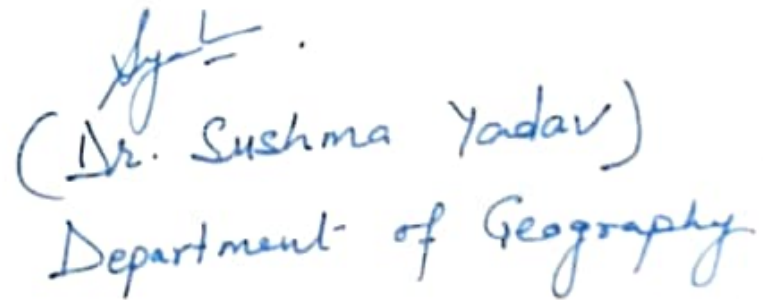 (Dr. Sushma Yadav)
Department of Geography